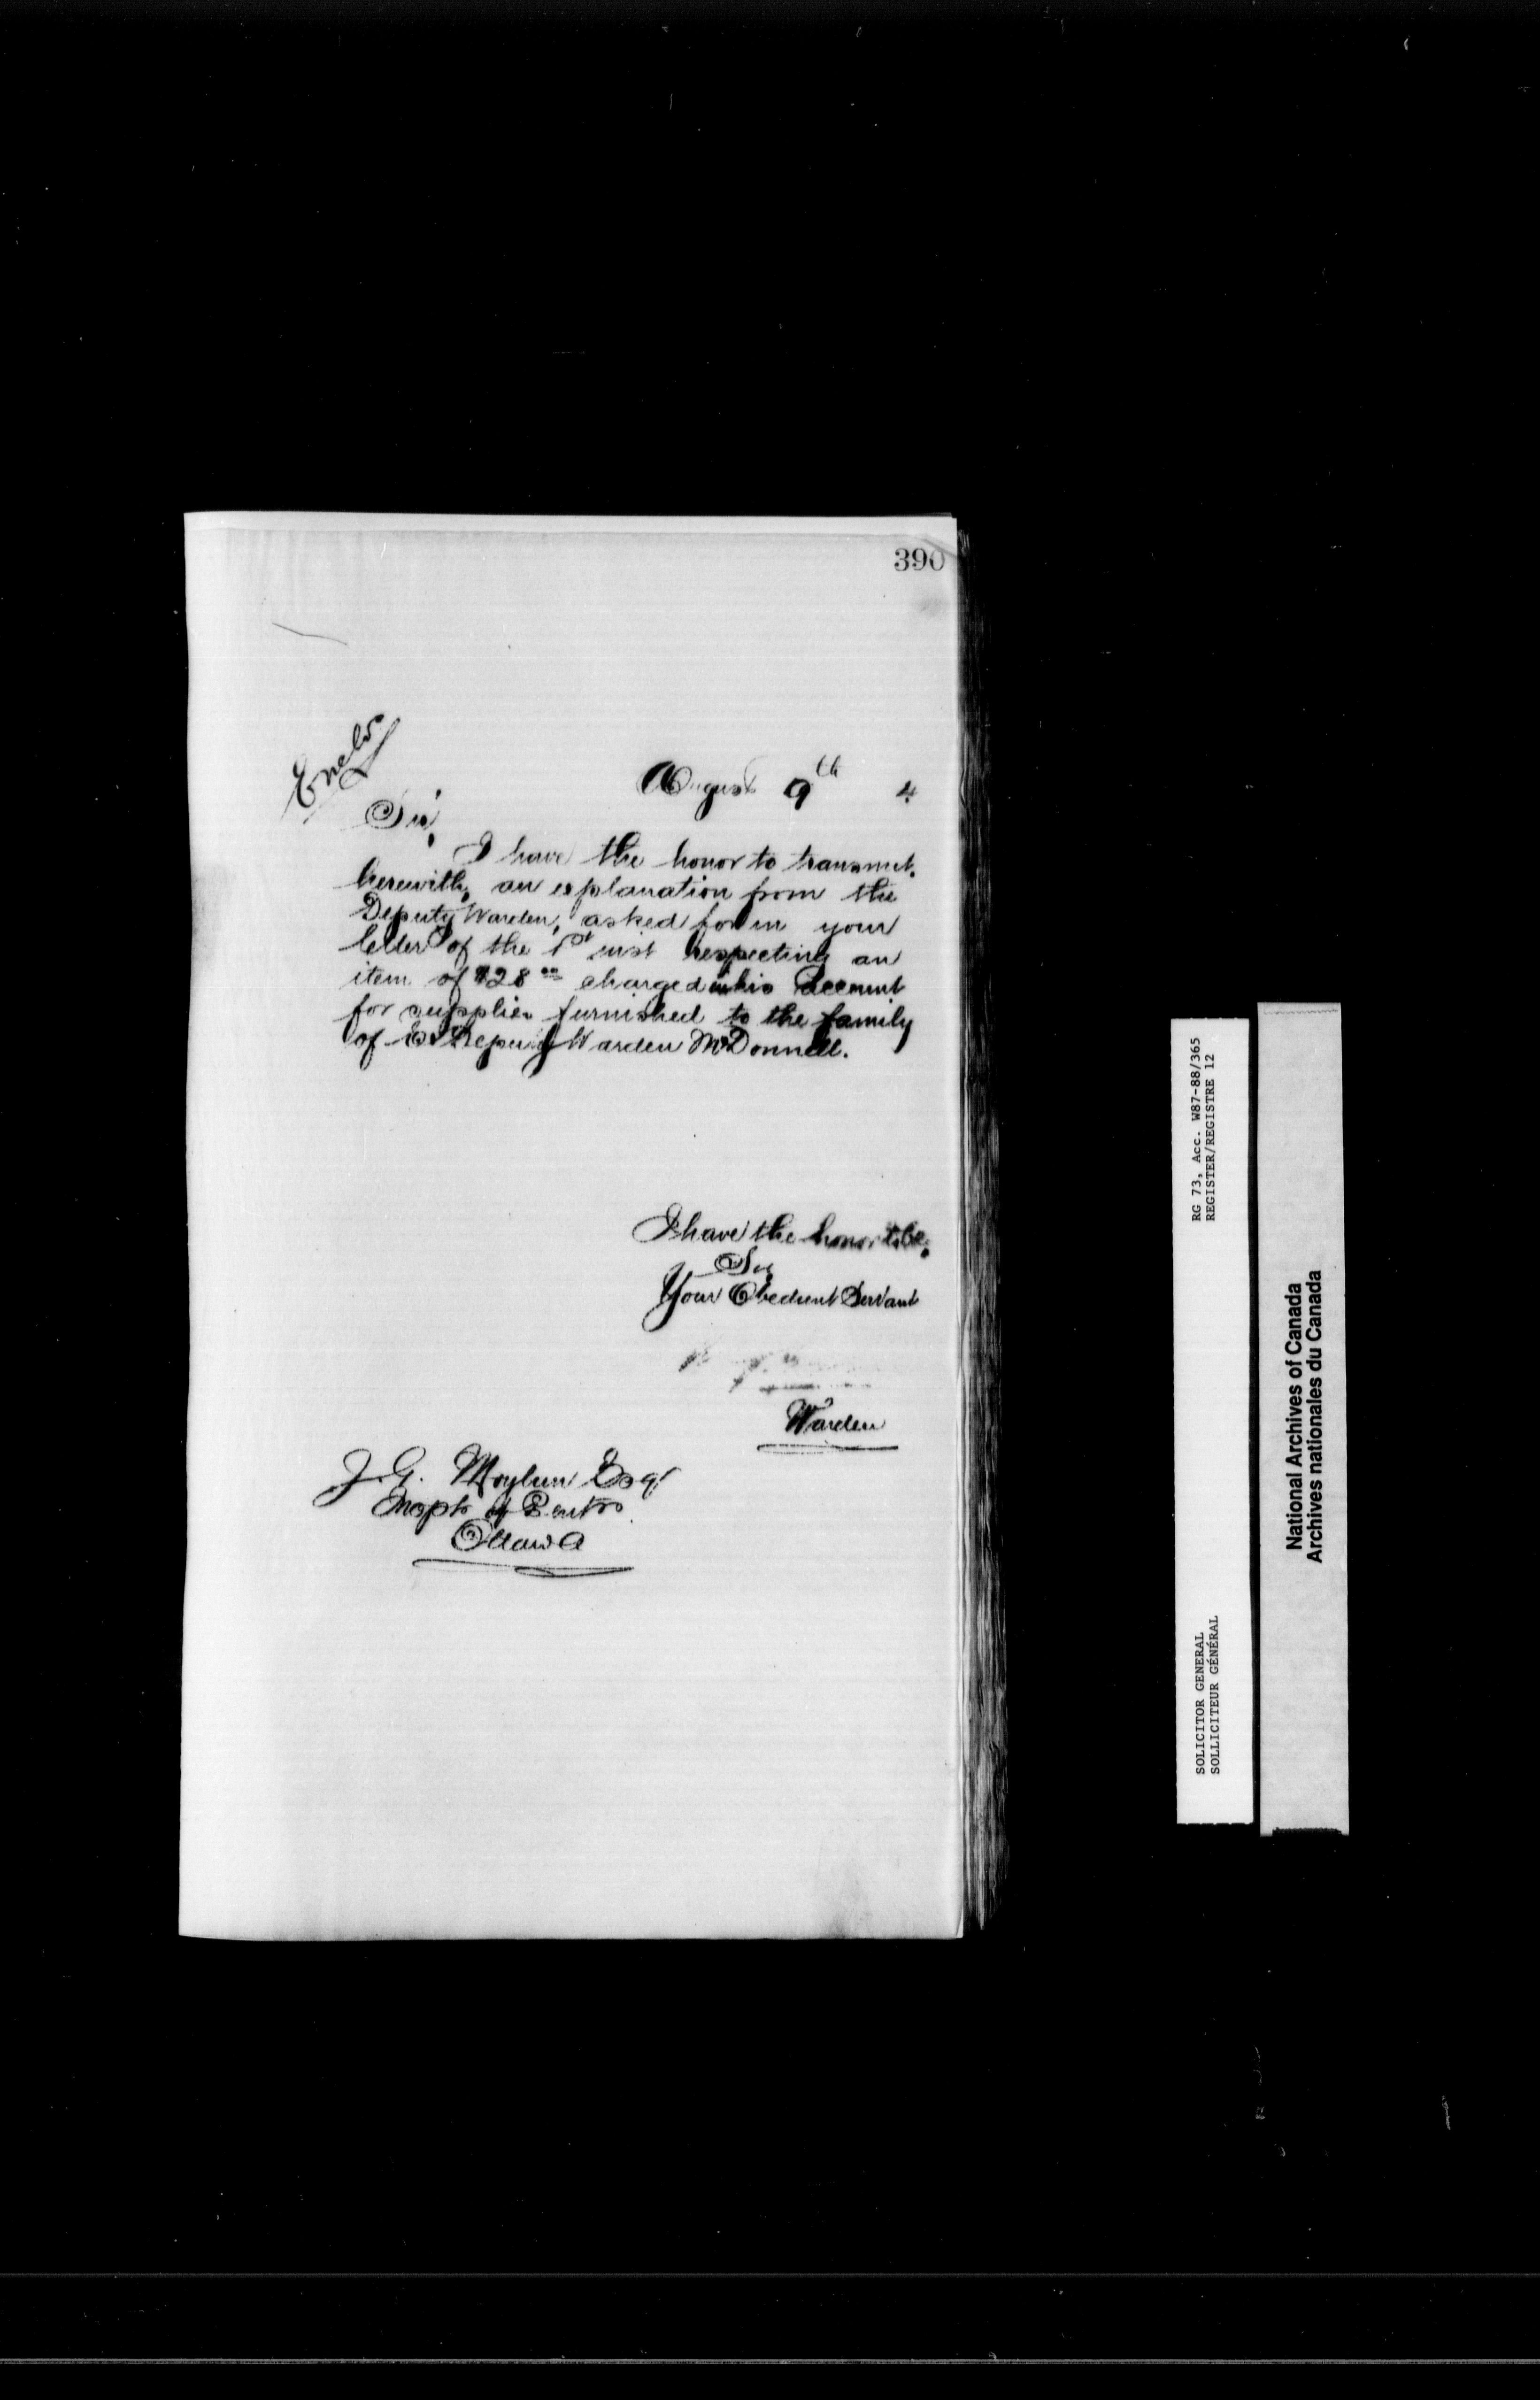 390
Encls
August 9th 4
Sir,
I have the honor to transmit,
herewith, an explanation from the
Deputy Warden, asked for in your
letter of the 1st inst respecting an
item of $28 00 charged in his account
for supplies furnished to the family
of Ex Deputy Warden McDonnell.
I have the honor to be,
Sir,
Your Obedient Servant
Warden
J. G. Moylan Esqr
Inspr of Pentrs
Ottawa
RG 73, Acc. W87-88/365
REGISTER/REGISTRE 12
SOLICITOR GENERAL
SOLLICITEUR GÉNÉRAL
National Archives of Canada
Archives nationales du Canada